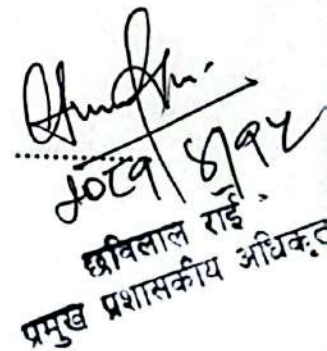 २०८१/४/१५
छविलाल राई
प्रमुख प्रशासकीय अधिकृत